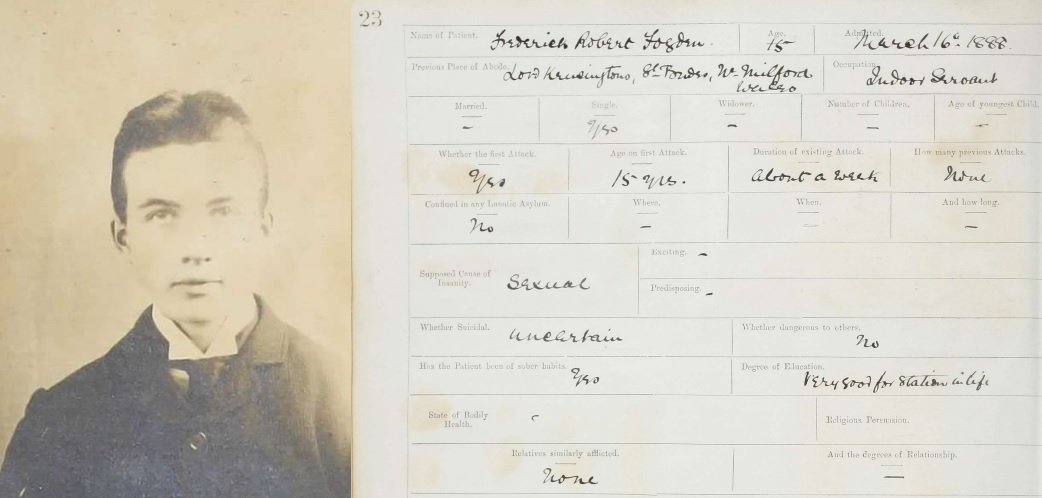 23
Name of Patient. Frederick Robert Fogden. Age. 15 Admitted. March 16th 1888.
Previous Place of Abode. Lord Kensingtons, St Brides, Nr Milford Occupation. Indoor Servant
Wales
Married. Single. Widower. Number of Children. Age of youngest Child.
- Yes - - -
Whether the first Attack. Age on first Attack. Duration of existing Attack. How many previous Attacks.
Yes 15 yrs. About a week None
Confined in any Lunatic Asylum. Where. When. And how long.
No - - -
Supposed Cause of Insanity. Sexual Exciting. -
Predisposing. -
Whether Suicidal. Uncertain Whether dangerous to others. No
Has the Patient been of sober habits. Yes Degree of Education. Very good for Station in life
State of Bodily Health. Religious Persuasion.
Relatives similarly afflicted. And the degrees of Relationship.
None -